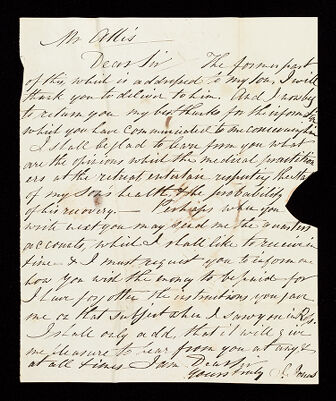 Mr Allis
Dear Sir The former part
of this which is addressed to my son, I will
thank you to deliver to him. And I now beg
to return you my best thanks for the information
which you have communicated to me concerning him
I shall be glad to learn from you what
are the opinions which the medical practition
ers at the retreat entertain respecting the state
of my Son's health & the probability
of his recovery.— Perhaps when you
write next you may send me the quarters
accounts, which I shall like to receive in
time & I must request you to inform me
how you wish the money to be paid for
I have forgotten the instructions you gave
me on that subject when I saw you in
I shall only add, that it will give
me pleasure to hear from you at any &
at all times I am Dear Sir
Yours truly S.